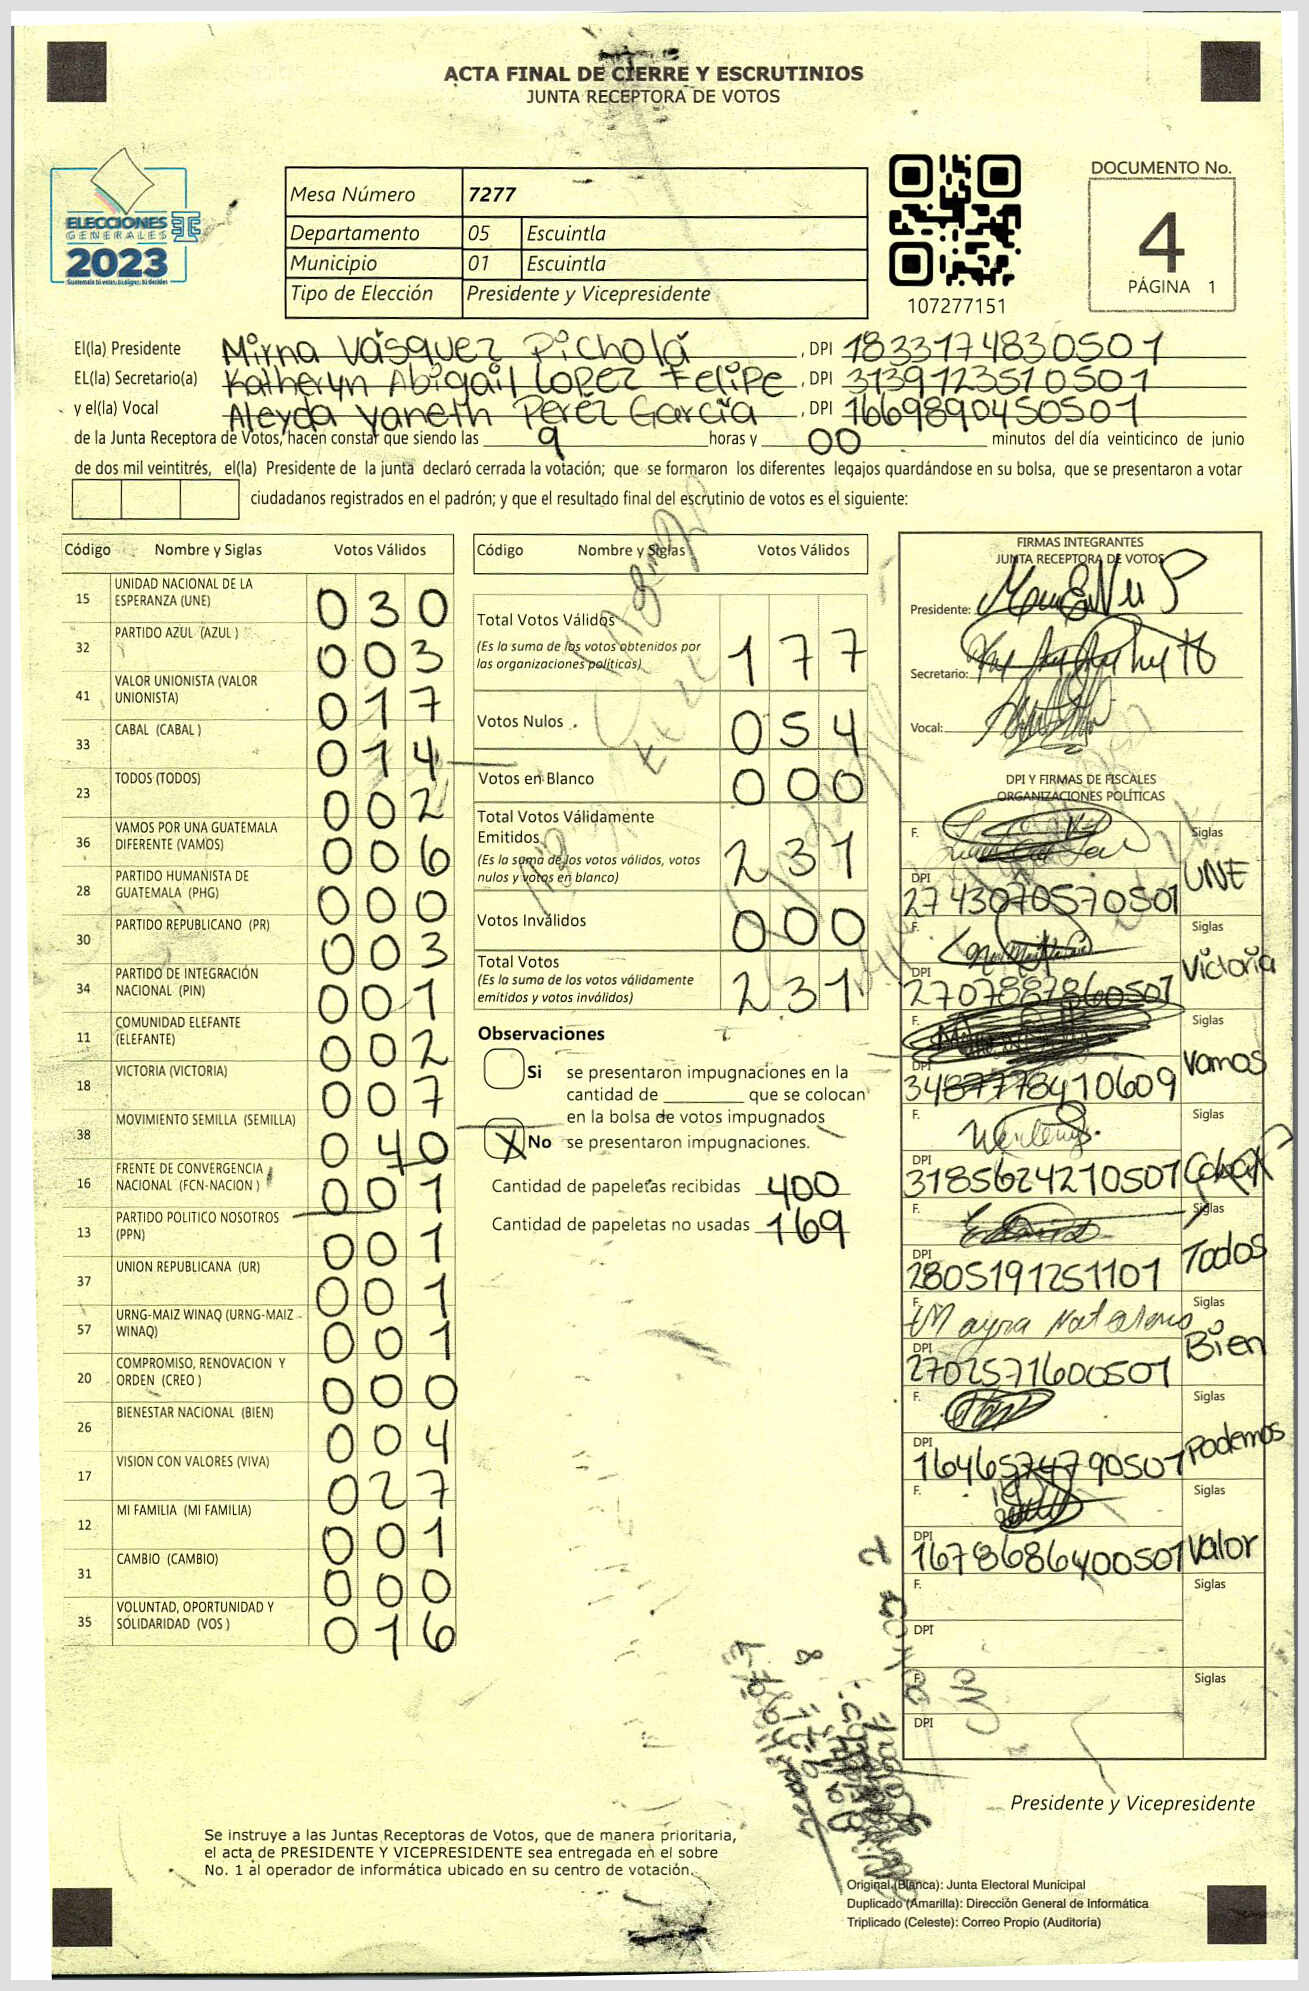 ACTA FINAL DE CIERRE Y ESCRUTINIOS
JUNTA RECEPTORA DE VOTOS
ELECCIONES
GENERALES
2023
Mesa Número 7277
Departamento 05 Escuintla
Municipio 01 Escuintla
Tipo de Elección Presidente y Vicepresidente
107277151
DOCUMENTO No.
4
PÁGINA 1
El(la) Presidente Mirna Vásquez Picholá , DPI 1833174830501
EL(la) Secretario(a) Katheryn Abigail Lopez Felipe , DPI 3139123510501
y el(la) Vocal Aleyda Yaneth Peréz García , DPI 1669890450501
de la Junta Receptora de Votos, hacen constar que siendo las 9 horas y 00 minutos del día veinticinco de junio
de dos mil veintitrés, el(la) Presidente de la junta declaró cerrada la votación; que se formaron los diferentes legajos quardándose en su bolsa, que se presentaron a votar
ciudadanos registrados en el padrón; y que el resultado final del escrutinio de votos es el siguiente:
Código Nombre y Siglas Votos Válidos
15 UNIDAD NACIONAL DE LA ESPERANZA (UNE) 030
32 PARTIDO AZUL (AZUL ) 003
41 VALOR UNIONISTA (VALOR UNIONISTA) 017
33 CABAL (CABAL ) 014
23 TODOS (TODOS) 002
36 VAMOS POR UNA GUATEMALA DIFERENTE (VAMOS) 006
28 PARTIDO HUMANISTA DE GUATEMALA (PHG) 000
30 PARTIDO REPUBLICANO (PR) 003
34 PARTIDO DE INTEGRACIÓN NACIONAL (PIN) 001
11 COMUNIDAD ELEFANTE (ELEFANTE) 002
18 VICTORIA (VICTORIA) 007
38 MOVIMIENTO SEMILLA (SEMILLA) 040
16 FRENTE DE CONVERGENCIA NACIONAL (FCN-NACION ) 001
13 PARTIDO POLITICO NOSOTROS (PPN) 001
37 UNION REPUBLICANA (UR) 001
57 URNG-MAIZ WINAQ (URNG-MAIZ WINAQ) 001
20 COMPROMISO, RENOVACION Y ORDEN (CREO ) 000
26 BIENESTAR NACIONAL (BIEN) 004
17 VISION CON VALORES (VIVA) 027
12 MI FAMILIA (MI FAMILIA) 001
31 CAMBIO (CAMBIO) 000
35 VOLUNTAD, OPORTUNIDAD Y SOLIDARIDAD (VOS ) 016
Código Nombre y Siglas Votos Válidos
Total Votos Válidos 177
(Es la suma de los votos obtenidos por
las organizaciones políticas)
Votos Nulos 054
Votos en Blanco 000
Total Votos Válidamente
Emitidos 231
(Es la suma de los votos válidos, votos
nulos y votos en blanco)
Votos Inválidos 000
Total Votos 231
(Es la suma de los votos válidamente
emitidos y votos inválidos)
Observaciones
Si se presentaron impugnaciones en la
cantidad de ________ que se colocan
en la bolsa de votos impugnados
X No se presentaron impugnaciones.
Cantidad de papeletas recibidas 400
Cantidad de papeletas no usadas 169
FIRMAS INTEGRANTES
JUNTA RECEPTORA DE VOTOS
Presidente:
Secretario:
Vocal:
DPI Y FIRMAS DE FISCALES
ORGANIZACIONES POLÍTICAS
F. Siglas
DPI 2743070570501 UNE
F. Siglas
DPI 2707887860501 Victoria
F. Siglas
DPI 3487778410609 Vamos
F. Siglas
DPI 3185624210501
F. Siglas
DPI 2805191251101 Todos
F. Mayra Siglas
DPI 2702571600501 Bien
F. Siglas
DPI 1646574790501 Podemos
F. Siglas
DPI 1678686400501 Valor
F. Siglas
DPI
F. Siglas
DPI
Presidente y Vicepresidente
Se instruye a las Juntas Receptoras de Votos, que de manera prioritaria,
el acta de PRESIDENTE Y VICEPRESIDENTE sea entregada en el sobre
No. 1 al operador de informática ubicado en su centro de votación.
Original (Blanca): Junta Electoral Municipal
Duplicado (Amarilla): Dirección General de Informática
Triplicado (Celeste): Correo Propio (Auditoría)